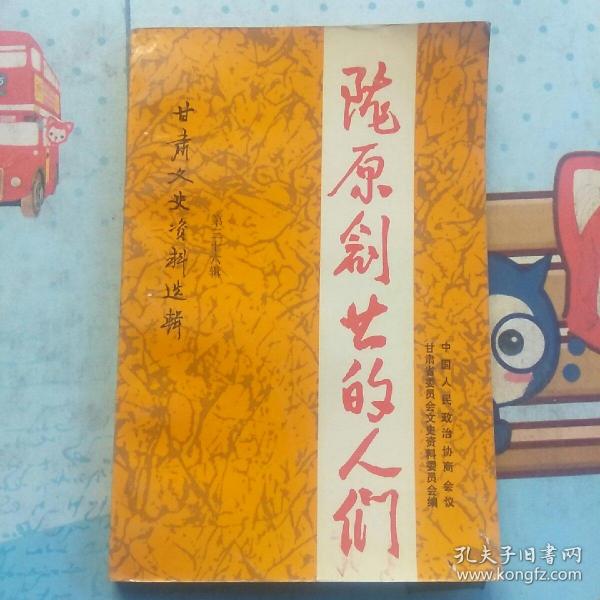 陇原创世的人们
甘肃文史资料选辑
第三十六辑
中国人民政治协商会议
甘肃省委员会文史资料委员会编
孔夫子旧书网
www.kongfz.com